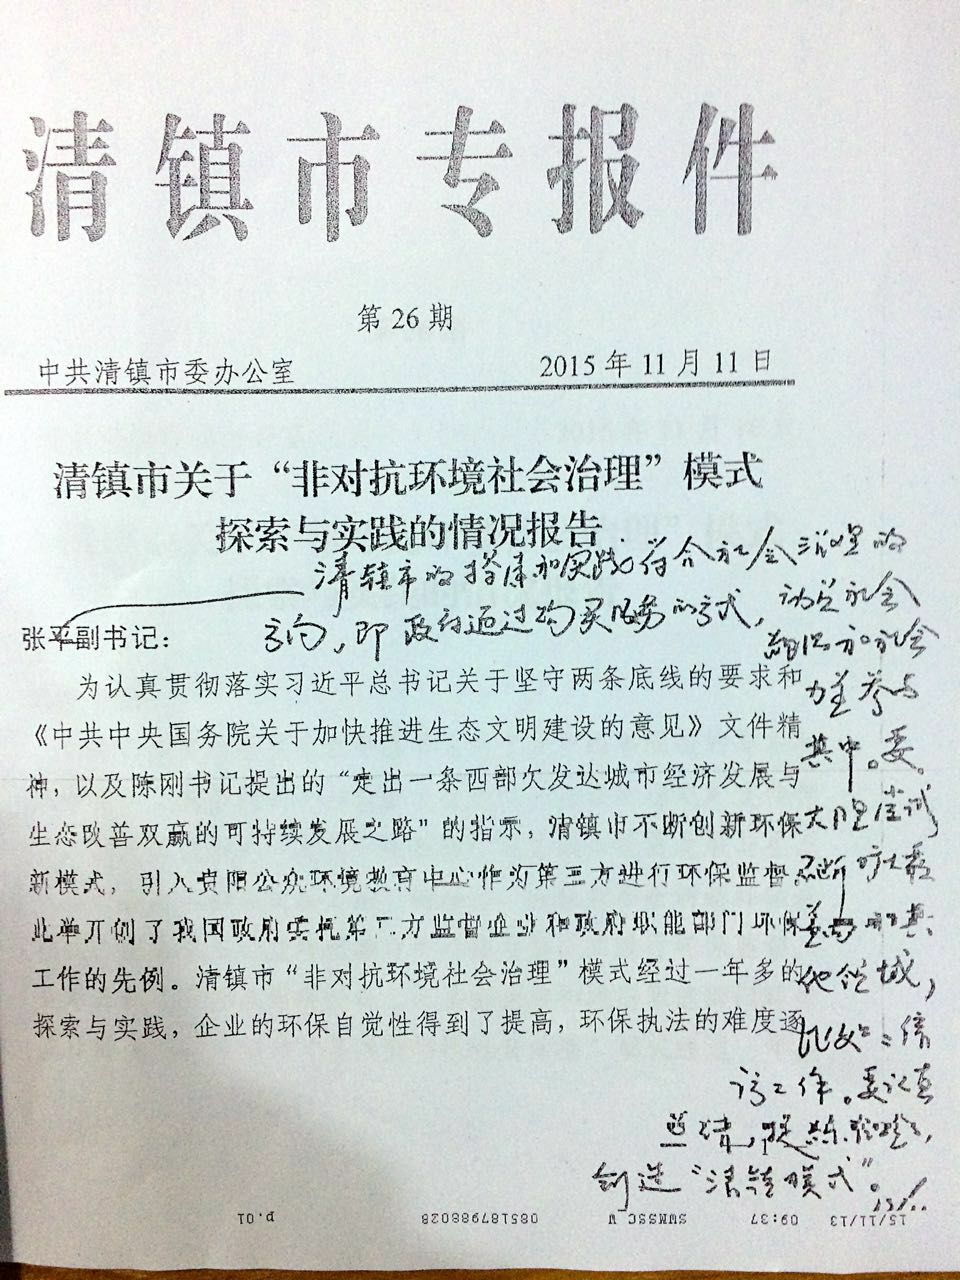 清镇市专报件
第26期
中共清镇市委办公室 2015年11月11日
清镇市关于“非对抗环境社会治理”模式
探索与实践的情况报告
清镇市的探索和实践，符合社会治理的
方向，即政府通过购买服务的方式，动员社会
组织和社会
力量参与
其中。要
大胆尝试
不断扩大覆
盖面和其
他领域，
比如：信
访工作。要认真
总结，提炼经验，
创造“清镇模式”。
张平副书记：
为认真贯彻落实习近平总书记关于坚守两条底线的要求和
《中共中央国务院关于加快推进生态文明建设的意见》文件精
神，以及陈刚书记提出的“走出一条西部欠发达城市经济发展与
生态改善双赢的可持续发展之路”的指示，清镇市不断创新环保
新模式，引入贵阳公众环境教育中心作为第三方进行环保监督，
此举开创了我国政府委托第三方监督企业和政府职能部门环保
工作的先例。清镇市“非对抗环境社会治理”模式经过一年多的
探索与实践，企业的环保自觉性得到了提高，环保执法的难度逐
15/11/13 09:37 SWMSSC W 085187988028 p.01